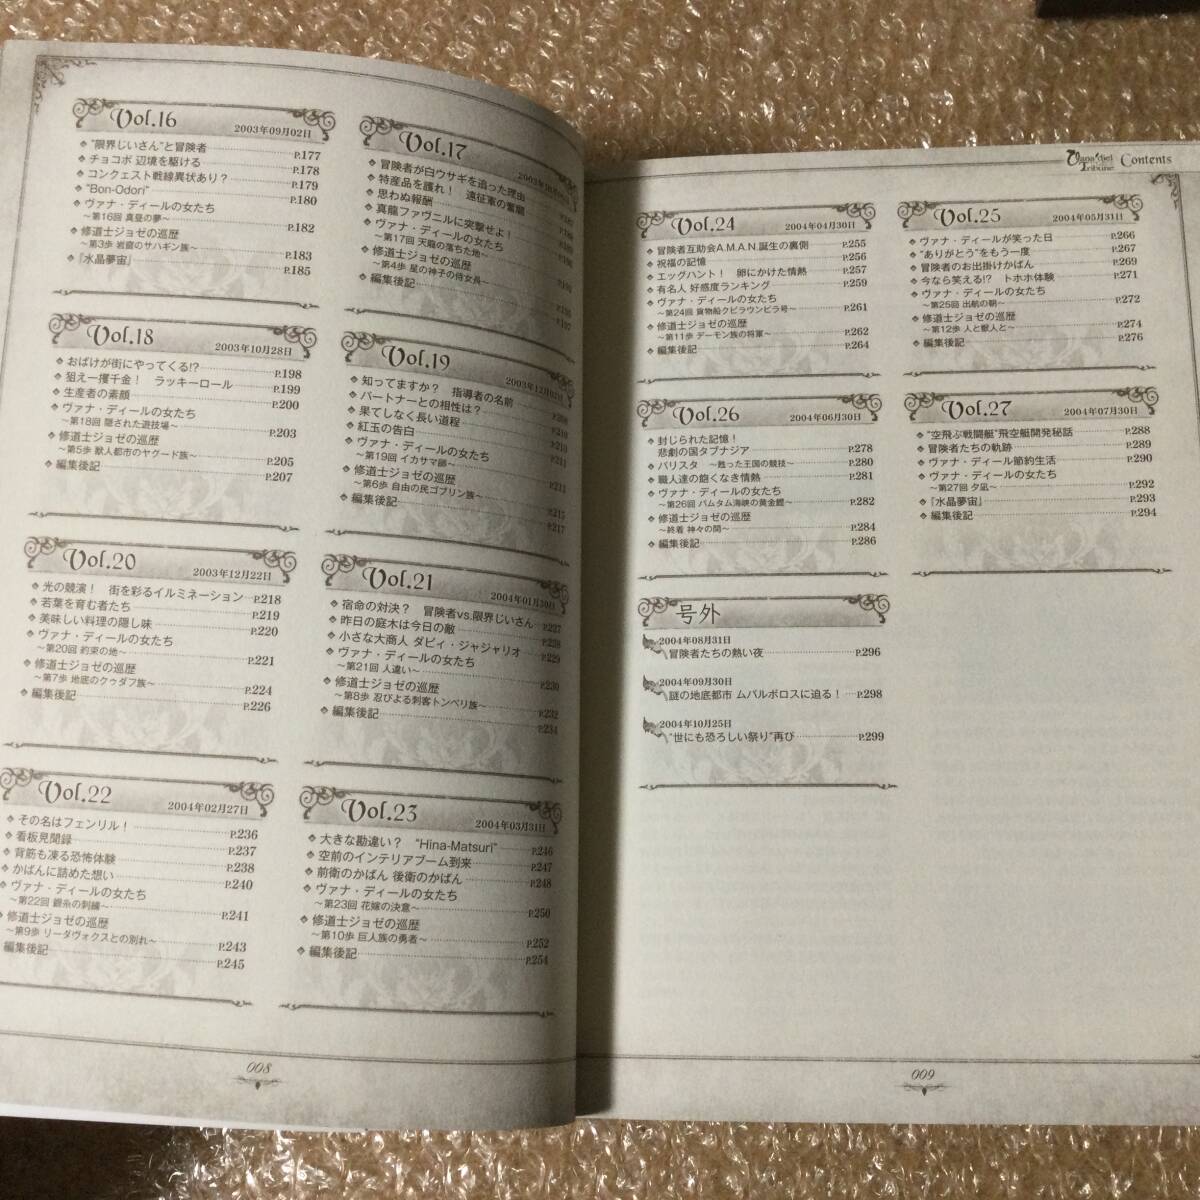 Vol.16
2003年09月02日
"限界じいさん"と冒険者 P.177
チョコボ 辺境を駆ける P.178
コンクェスト戦線異状あり? P.179
"Bon-Odori" P.180
ヴァナ・ディールの女たち
～第16回 真昼の夢～ P.182
修道士ジョゼの巡歴
～第3歩 岩窟のサハギン族～ P.183
『水晶夢宙』 P.185
Vol.17
冒険者が白ウサギを追った理由
特産品を護れ! 遠征軍の奮闘
思わぬ報酬
真龍ファヴニルに突撃せよ!
ヴァナ・ディールの女たち
～第17回 天龍の落ちた地～
修道士ジョゼの巡歴
～第4歩 星の神子の侍女長～
編集後記
Vol.18
2003年10月28日
おばけが街にやってくる!? P.198
狙え一攫千金! ラッキーロール P.199
生産者の素顔 P.200
ヴァナ・ディールの女たち
～第18回 隠された遊技場～ P.203
修道士ジョゼの巡歴
～第5歩 獣人都市のヤグード族～ P.205
編集後記 P.207
Vol.19
2003年12月02日
知ってますか? 指導者の名前
パートナーとの相性は?
果てしなく長い道程 P.210
紅玉の告白
ヴァナ・ディールの女たち
～第19回 イカサマ師～
修道士ジョゼの巡歴
～第6歩 自由の民ゴブリン族～ P.215
編集後記 P.217
Vol.20
2003年12月22日
光の競演! 街を彩るイルミネーション P.218
若葉を育む者たち P.219
美味しい料理の隠し味 P.220
ヴァナ・ディールの女たち
～第20回 約束の地～ P.221
修道士ジョゼの巡歴
～第7歩 地底のクゥダフ族～ P.224
編集後記 P.226
Vol.21
2004年01月30日
宿命の対決? 冒険者vs.限界じいさん P.227
昨日の庭木は今日の敵 P.228
小さな大商人 ダビィ・ジャジャリオ P.229
ヴァナ・ディールの女たち
～第21回 人違い～ P.230
修道士ジョゼの巡歴
～第8歩 忍びよる刺客トンベリ族～ P.232
編集後記 P.234
Vol.22
2004年02月27日
その名はフェンリル! P.236
看板見聞録 P.237
背筋も凍る恐怖体験 P.238
かばんに詰めた想い P.240
ヴァナ・ディールの女たち
～第22回 銀糸の刺繍～ P.241
修道士ジョゼの巡歴
～第9歩 リーダヴォクスとの別れ～ P.243
編集後記 P.245
Vol.23
2004年03月31日
大きな勘違い? "Hina-Matsuri" P.246
空前のインテリアブーム到来 P.247
前衛のかばん 後衛のかばん P.248
ヴァナ・ディールの女たち
～第23回 花嫁の決意～ P.250
修道士ジョゼの巡歴
～第10歩 巨人族の勇者～ P.252
編集後記 P.254
008
Vana'diel Tribune Contents
Vol.24
2004年04月30日
冒険者互助会A.M.A.N.誕生の裏側 P.255
祝福の記憶 P.256
エッグハント! 卵にかけた情熱 P.257
有名人 好感度ランキング P.259
ヴァナ・ディールの女たち
～第24回 貨物船クピラウンピラ号～ P.261
修道士ジョゼの巡歴
～第11歩 デーモン族の将軍～ P.262
編集後記 P.264
Vol.25
2004年05月31日
ヴァナ・ディールが笑った日 P.266
"ありがとう"をもう一度 P.267
冒険者のお出掛けかばん P.269
今なら笑える!? トホホ体験 P.271
ヴァナ・ディールの女たち
～第25回 出航の朝～ P.272
修道士ジョゼの巡歴
～第12歩 人と獣人と～ P.274
編集後記 P.276
Vol.26
2004年06月30日
封じられた記憶!
悲劇の国タブナジア P.278
バリスタ ～甦った王国の競技～ P.280
職人達の飽くなき情熱 P.281
ヴァナ・ディールの女たち
～第26回 バムタム海峡の黄金鯉～ P.282
修道士ジョゼの巡歴
～終着 神々の間～ P.284
編集後記 P.286
Vol.27
2004年07月30日
"空飛ぶ戦闘艇"飛空艇開発秘話 P.288
冒険者たちの軌跡 P.289
ヴァナ・ディール節約生活 P.290
ヴァナ・ディールの女たち
～第27回 夕凪～ P.292
『水晶夢宙』 P.293
編集後記 P.294
号外
2004年08月31日
冒険者たちの熱い夜 P.296
2004年09月30日
謎の地底都市 ムバルポロスに迫る! P.298
2004年10月25日
"世にも恐ろしい祭り"再び P.299
009